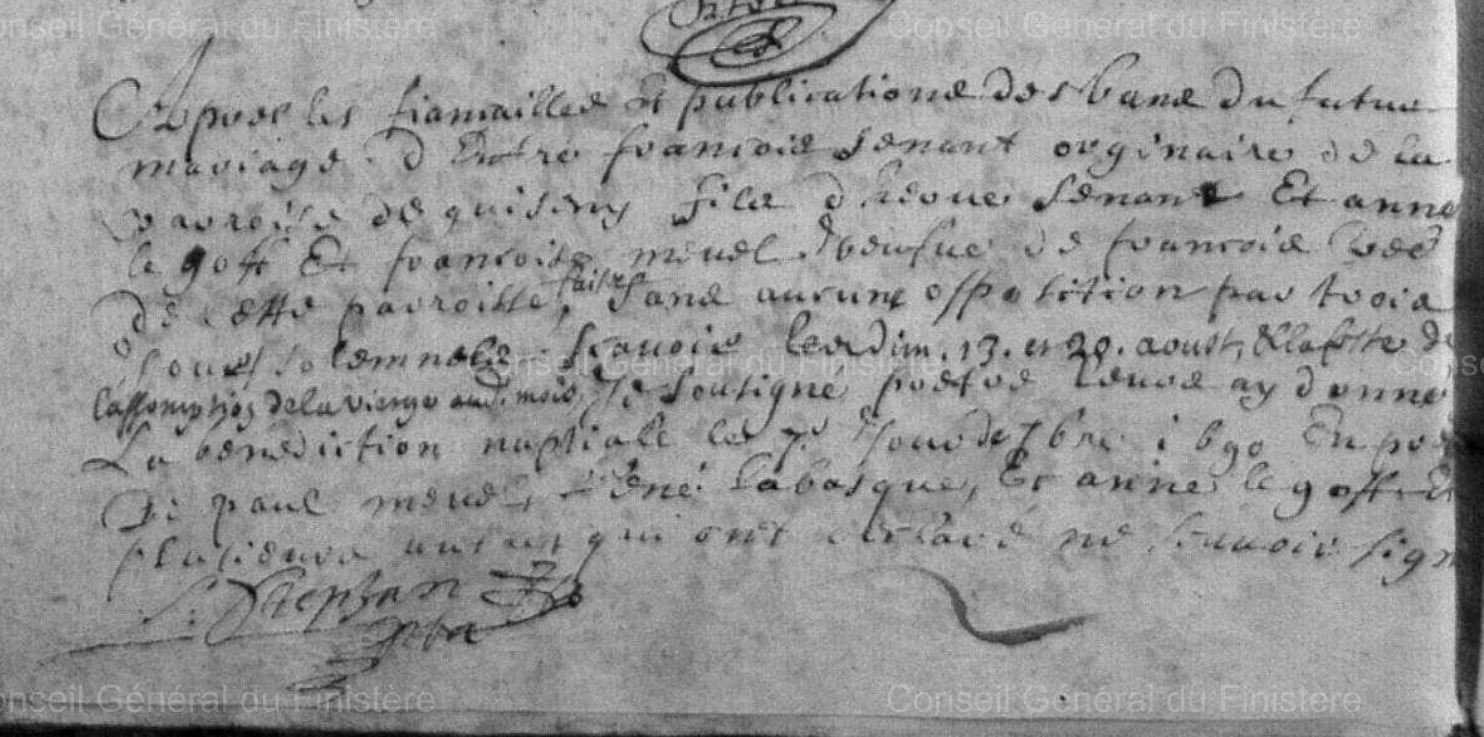 Apres les fiancailles et publications des bans du futur
mariage d'Entre francois senant orginaire de la
parroisse de quiseny fils d'herve senant Et anne
le goff Et francoise mevel veufve de francois
de cette parroisse, faites sans aucune oppolition par trois
jours solemnels scavoir les dim. 13. et 20. aoust, & la feste de
l'assomption de la vierge aud. mois, Je soutigné prestre ay donné
La benediction nuptiale le 7e jour de 7bre 1690 En
De paul mevel, rené labasque, Et anne le goff Et
plusieurs autres qui ont declaré ne scavoir sign
Stephan
ptre
Conseil Général du Finistère
Conseil Général du Finistère
Conseil Général du Finistère
Conseil Général du Finistère